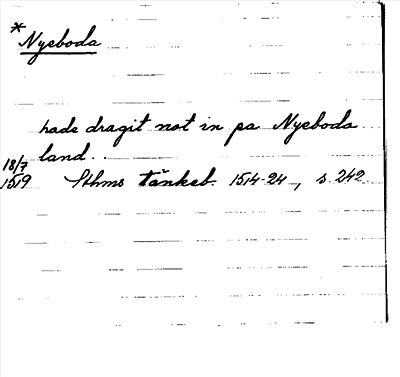 *
Nyeboda
hade dragit not in pa Nyeboda
land..
18/7
1519 Sthms tänkeb. 1514-24, s. 242.